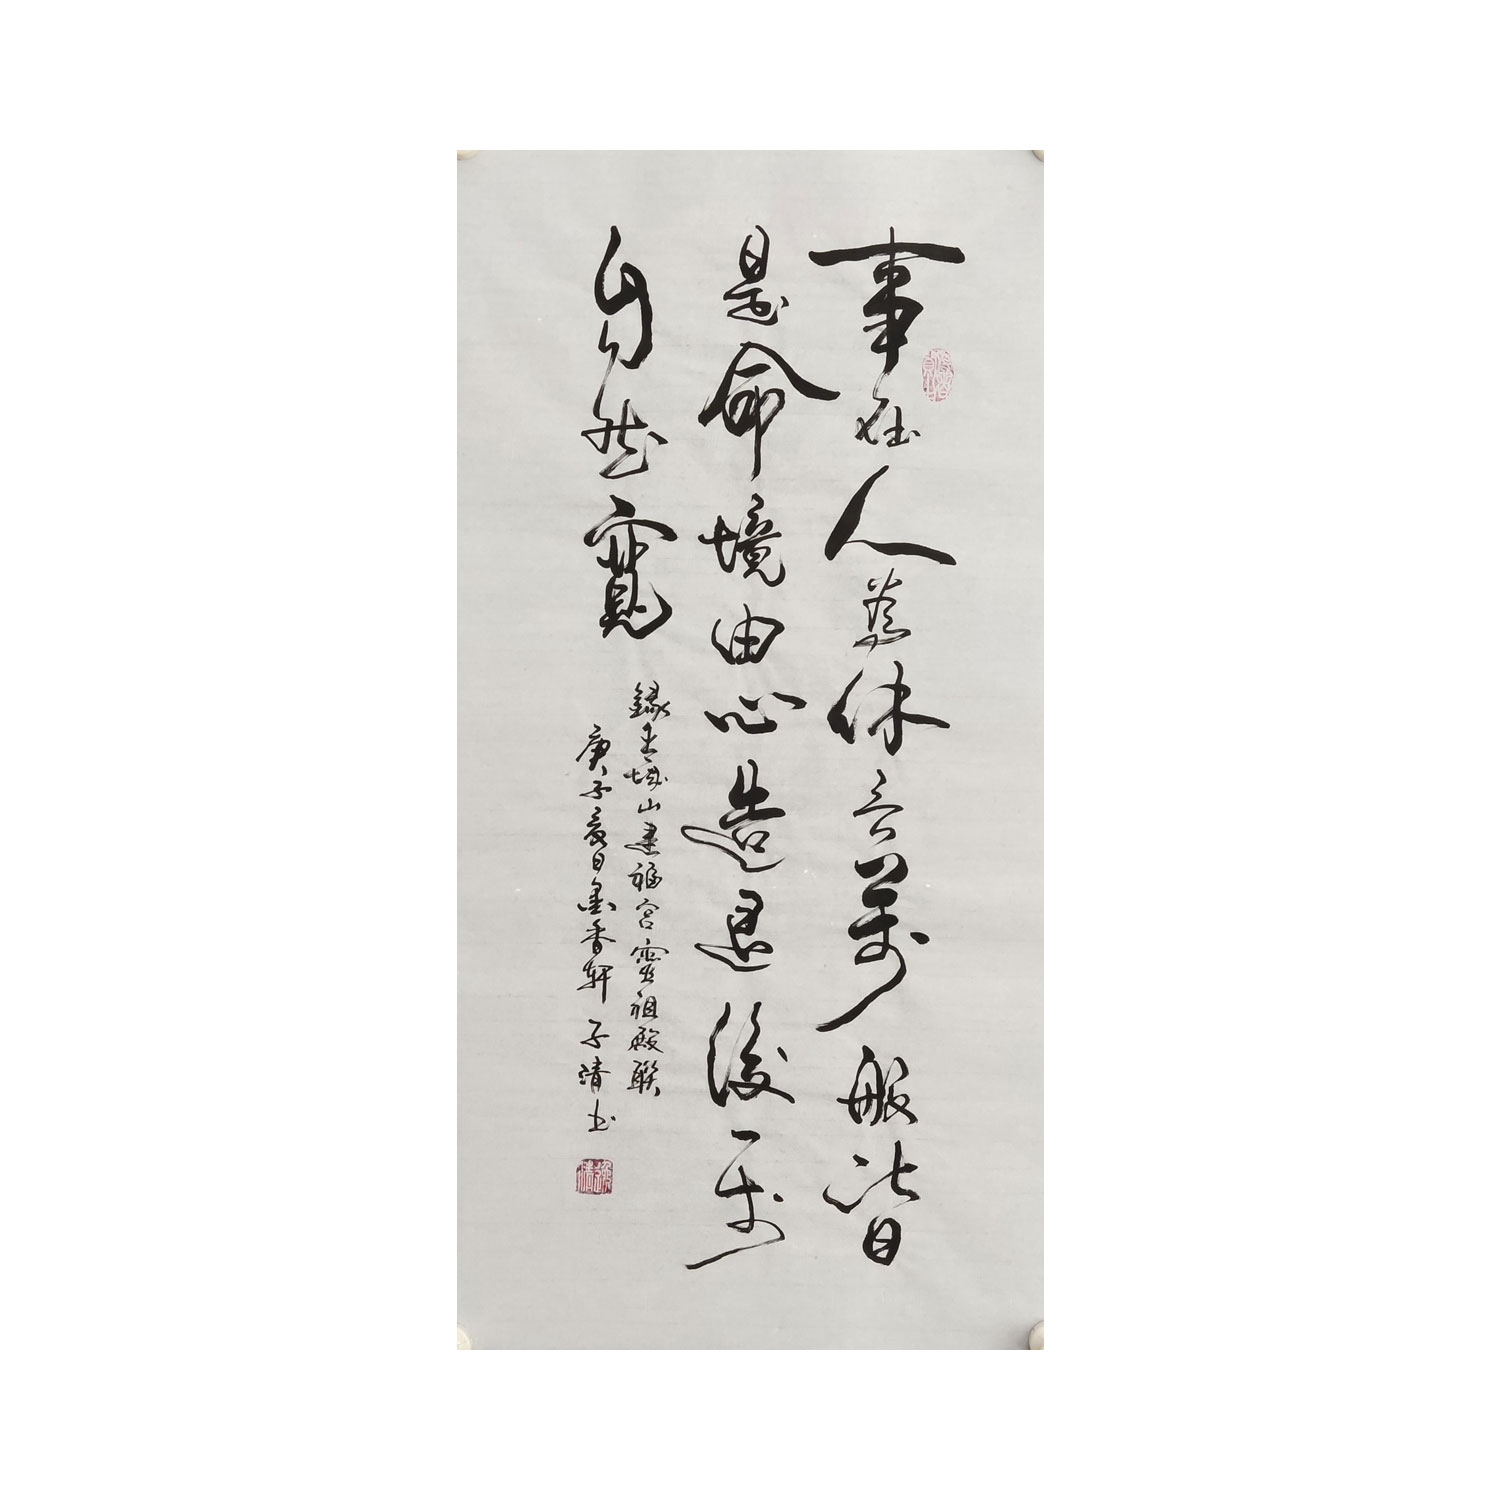 事在人為休言萬般皆
是命境由心造退後一步
自然寬
錄青城山建福宮靈祖殿聯
庚子夏日墨香軒子清书